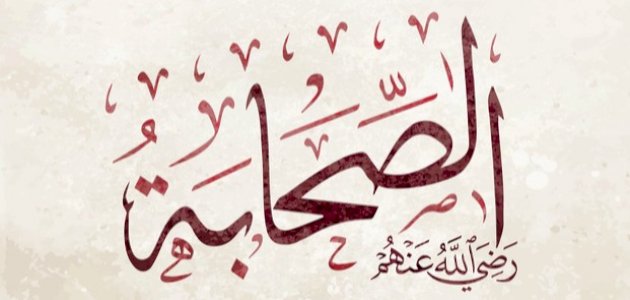 الصَّحَابَةُ
رَضِيَ ٱللَّهُ عَنْهُمْ